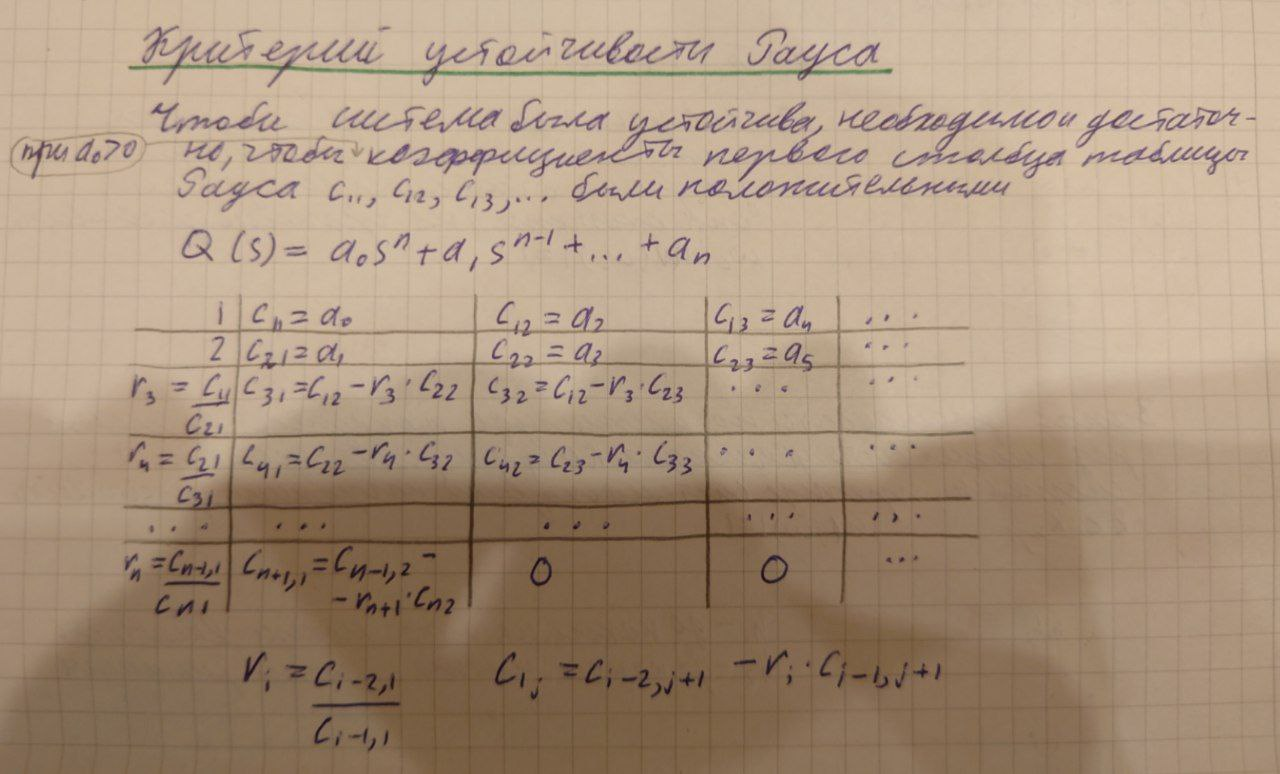 Критерий устойчивости Рауса
Чтобы система была устойчива, необходимо и достаточ-
при a₀>0 но, чтобы коэффициенты первого столбца таблицы
Рауса c₁₁, c₁₂, c₁₃, ... были положительными
Q(s) = a₀sⁿ + a₁sⁿ⁻¹ + ... + aₙ
1 c₁₁ = a₀ c₁₂ = a₂ c₁₃ = a₄ ...
2 c₂₁ = a₁ c₂₂ = a₃ c₂₃ = a₅ ...
r₃ = c₁₁/c₂₁ c₃₁ = c₁₂ - r₃·c₂₂ c₃₂ = c₁₂ - r₃·c₂₃ ... ...
r₄ = c₂₁/c₃₁ c₄₁ = c₂₂ - r₄·c₃₂ c₄₂ = c₂₃ - r₄·c₃₃ ... ...
... ... ... ... ...
rₙ = cₙ₋₁,₁/cₙ₁ cₙ₊₁,₁ = cₙ₋₁,₂ - 0 0 ...
- rₙ₊₁·cₙ₂
rᵢ = cᵢ₋₂,₁/cᵢ₋₁,₁ c₁ⱼ = cᵢ₋₂,ⱼ₊₁ - rᵢ·cᵢ₋₁,ⱼ₊₁